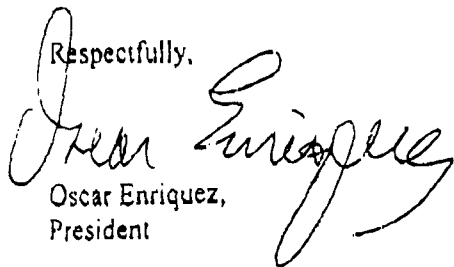 Respectfully,
Oscar Enriquez
Oscar Enriquez,
President